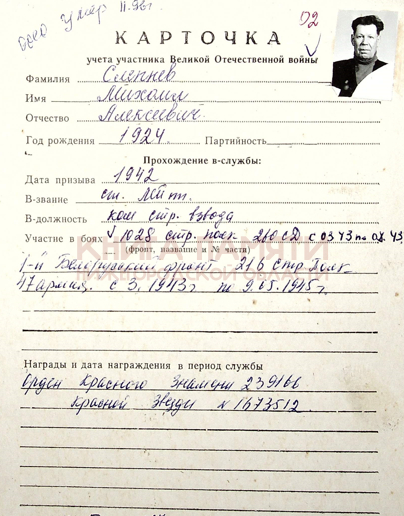 умер II.96г.
02
КАРТОЧКА
учета участника Великой Отечественной войны
Фамилия Слепнев
Имя Михаил
Отчество Алексеевич
Год рождения 1924 Партийность
Прохождение в-службы:
Дата призыва 1942
В-звание ст. Лейт.
В-должность ком стр. взвода
Участие в боях 1028 стр. полк 260 СД с 03 43 по 07. 43
(фронт, название и № части)
КНИГА ПАМЯТИ
1-й Белорусский фронт 216 стр. Полк
47 армия. с 3. 1943г по 9.05.1945г.
Награды и дата награждения в период службы
Орден Красного Знамени 239166
Красной Звезды № 1673512